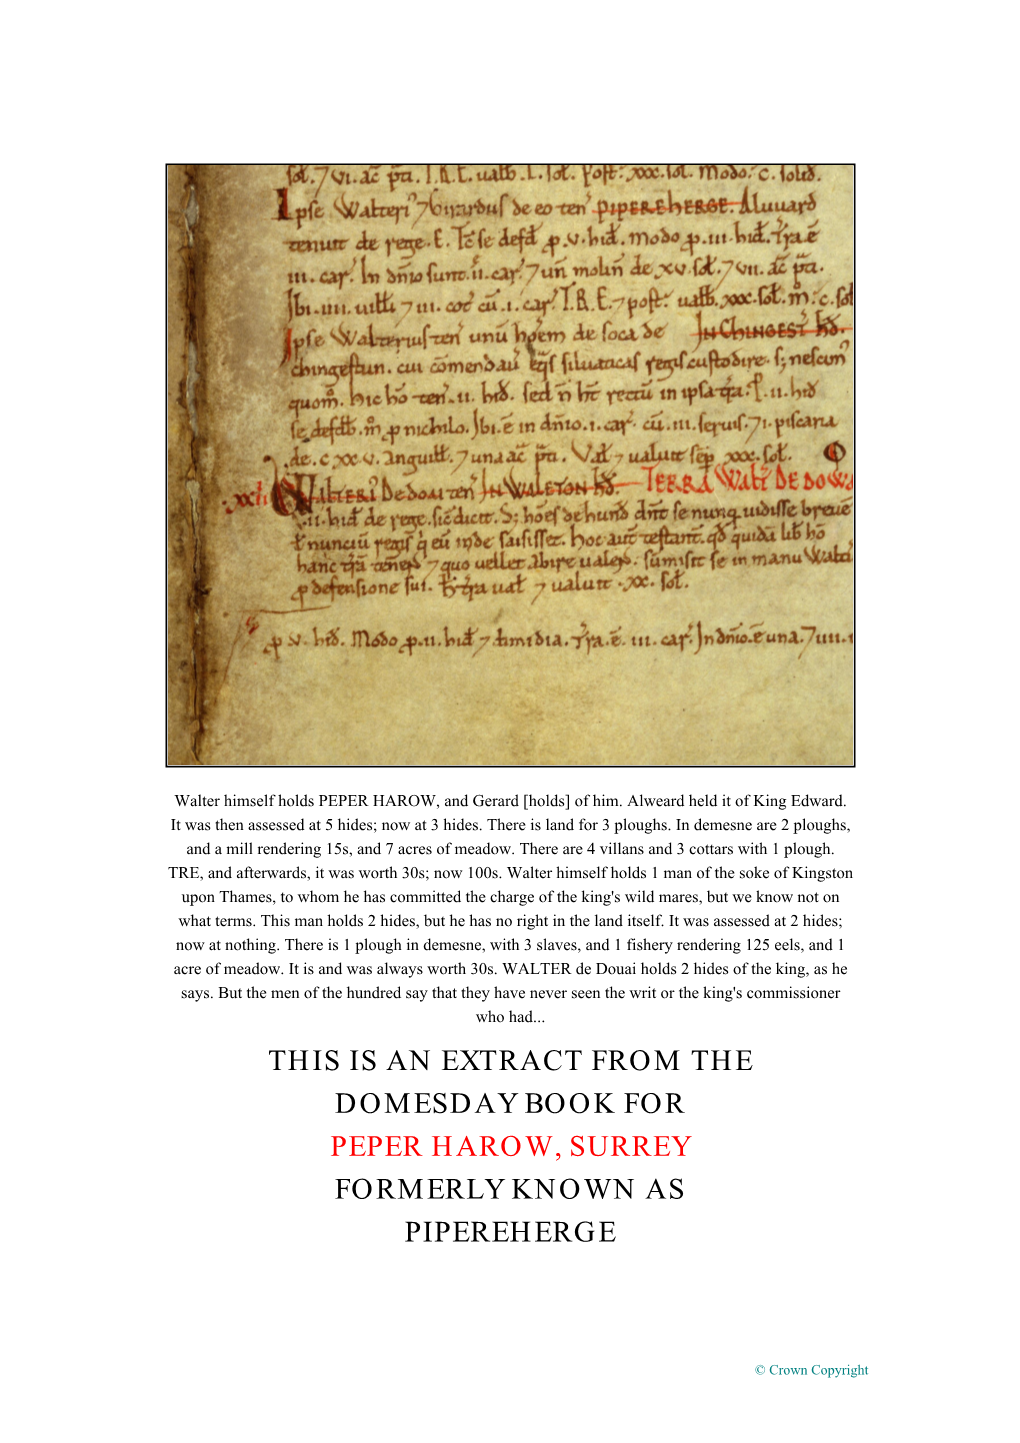 sot. ⁊ vi. ac̄ p̄ti. T.R.E. ualb̄. L. sot. Post: xxx. sot. Modo: c. solid.
Ipse Walteri⁹ ⁊ Girardus de eo ten̄ PIPEREHERGE. Aluuard
tenuit de rege. E. Tc̄ se defd̄ p. v. hid. modo p. iii. hid. Tr̄a ē
iii. car̄. In dn̄io sunt. ii. car̄. ⁊ un̄ molin̄ de xv. sot. ⁊ vii. ac̄ p̄ti.
Ibi. iiii. uilli ⁊ iii. cot̄ cū. i. car̄. T.R.E. ⁊ post: ualb̄. xxx. sot. m̊: c. sot
Ipse Walterius ten̄ unū hōem de soca de IN CHINGEST̄ HD̄.
chingestun. cui cōmendau̅ eq̄s siluaticas regis custodire. s; nescim⁹
quom̊. hic hō ten̄. ii. hid̄. sed n̄ ht̄ rectū in ipsa tr̄a. P. ii. hid̄
se defdb̄. m̊ p nichilo. Ibi. ē in dn̄io. i. car̄. cū. iii. seruis. ⁊ i. piscaria
de. c xx v. anguilt. ⁊ una ac̄ p̄ti. Vat ⁊ ualuit sēp xxx. sot.
.xxii. WALTERI⁹ De doai ten̄ IN WALETON HD̄. TERRA WALT̄ DE DOWA
.ii. hid̄ de rege. sic̄ dicit. S; hōes de hund̄ dn̄t se nunq. uidisse breuē
t nunciū regis q̄ eū inde saisisset. hoc aut̄ testant̄. qd̄ quidā lib̄ hō
hanc tr̄a tenens ⁊ quo uellet abire ualens. sūmisit se in manu Walt̄i
p defensione sui. H̄ tr̄a uat ⁊ ualuit. xx. sot.
p v. hid̄. Modo p. ii. hid̄ ⁊ dimidia. Tr̄a. ē. iii. car̄. In dn̄io. ē una. ⁊ iiii.
Walter himself holds PEPER HAROW, and Gerard [holds] of him. Alweard held it of King Edward.
It was then assessed at 5 hides; now at 3 hides. There is land for 3 ploughs. In demesne are 2 ploughs,
and a mill rendering 15s, and 7 acres of meadow. There are 4 villans and 3 cottars with 1 plough.
TRE, and afterwards, it was worth 30s; now 100s. Walter himself holds 1 man of the soke of Kingston
upon Thames, to whom he has committed the charge of the king's wild mares, but we know not on
what terms. This man holds 2 hides, but he has no right in the land itself. It was assessed at 2 hides;
now at nothing. There is 1 plough in demesne, with 3 slaves, and 1 fishery rendering 125 eels, and 1
acre of meadow. It is and was always worth 30s. WALTER de Douai holds 2 hides of the king, as he
says. But the men of the hundred say that they have never seen the writ or the king's commissioner
who had...
THIS IS AN EXTRACT FROM THE
DOMESDAY BOOK FOR
PEPER HAROW, SURREY
FORMERLY KNOWN AS
PIPEREHERGE
© Crown Copyright